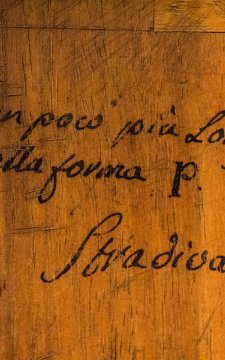 un poco più Lo
ella forma p.
Stradiva